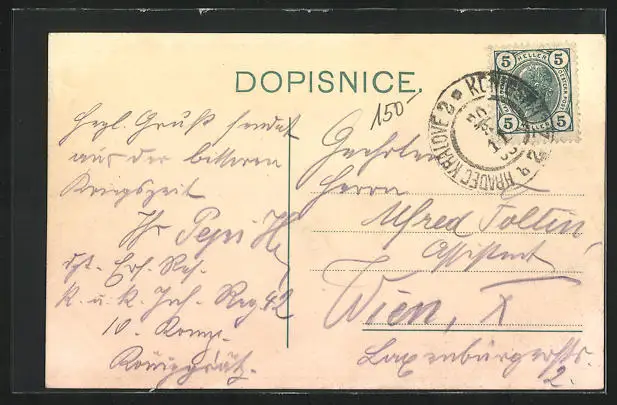 DOPISNICE.
150-
5 HELLER 5
5 HELLER 5
KÖNIGGRÄTZ 2
HRADEC KRÁLOVÉ 2
Herzl. Gruß sendet
aus der bitteren
Kriegszeit
Ihr Pepi
Ers. Res.
k. u. k. Inf. Reg. 42
10. Komp.
Königgrätz.
Geehrten
Herrn
Alfred Foltin,
Assistent
Wien, X
Laxenburgerstr.
2.